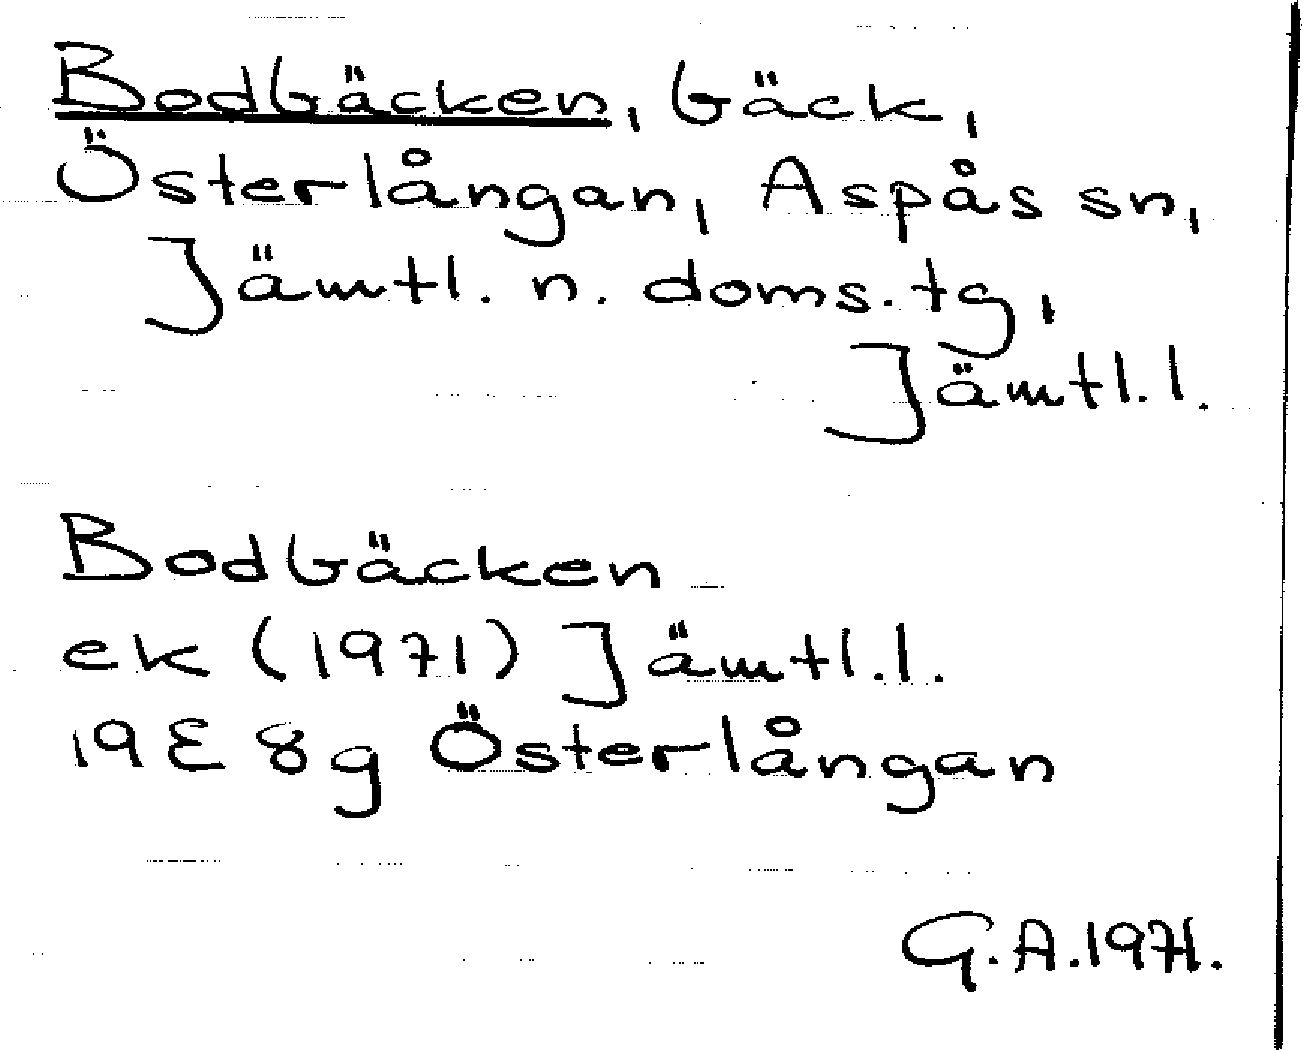 Bodbäcken, bäck,
Österlångan, Aspås sn,
Jämtl. n. doms.tg,
Jämtl.l.
Bodbäcken
ek (1971) Jämtl.l.
19E 8g Österlångan
G.A.1971.